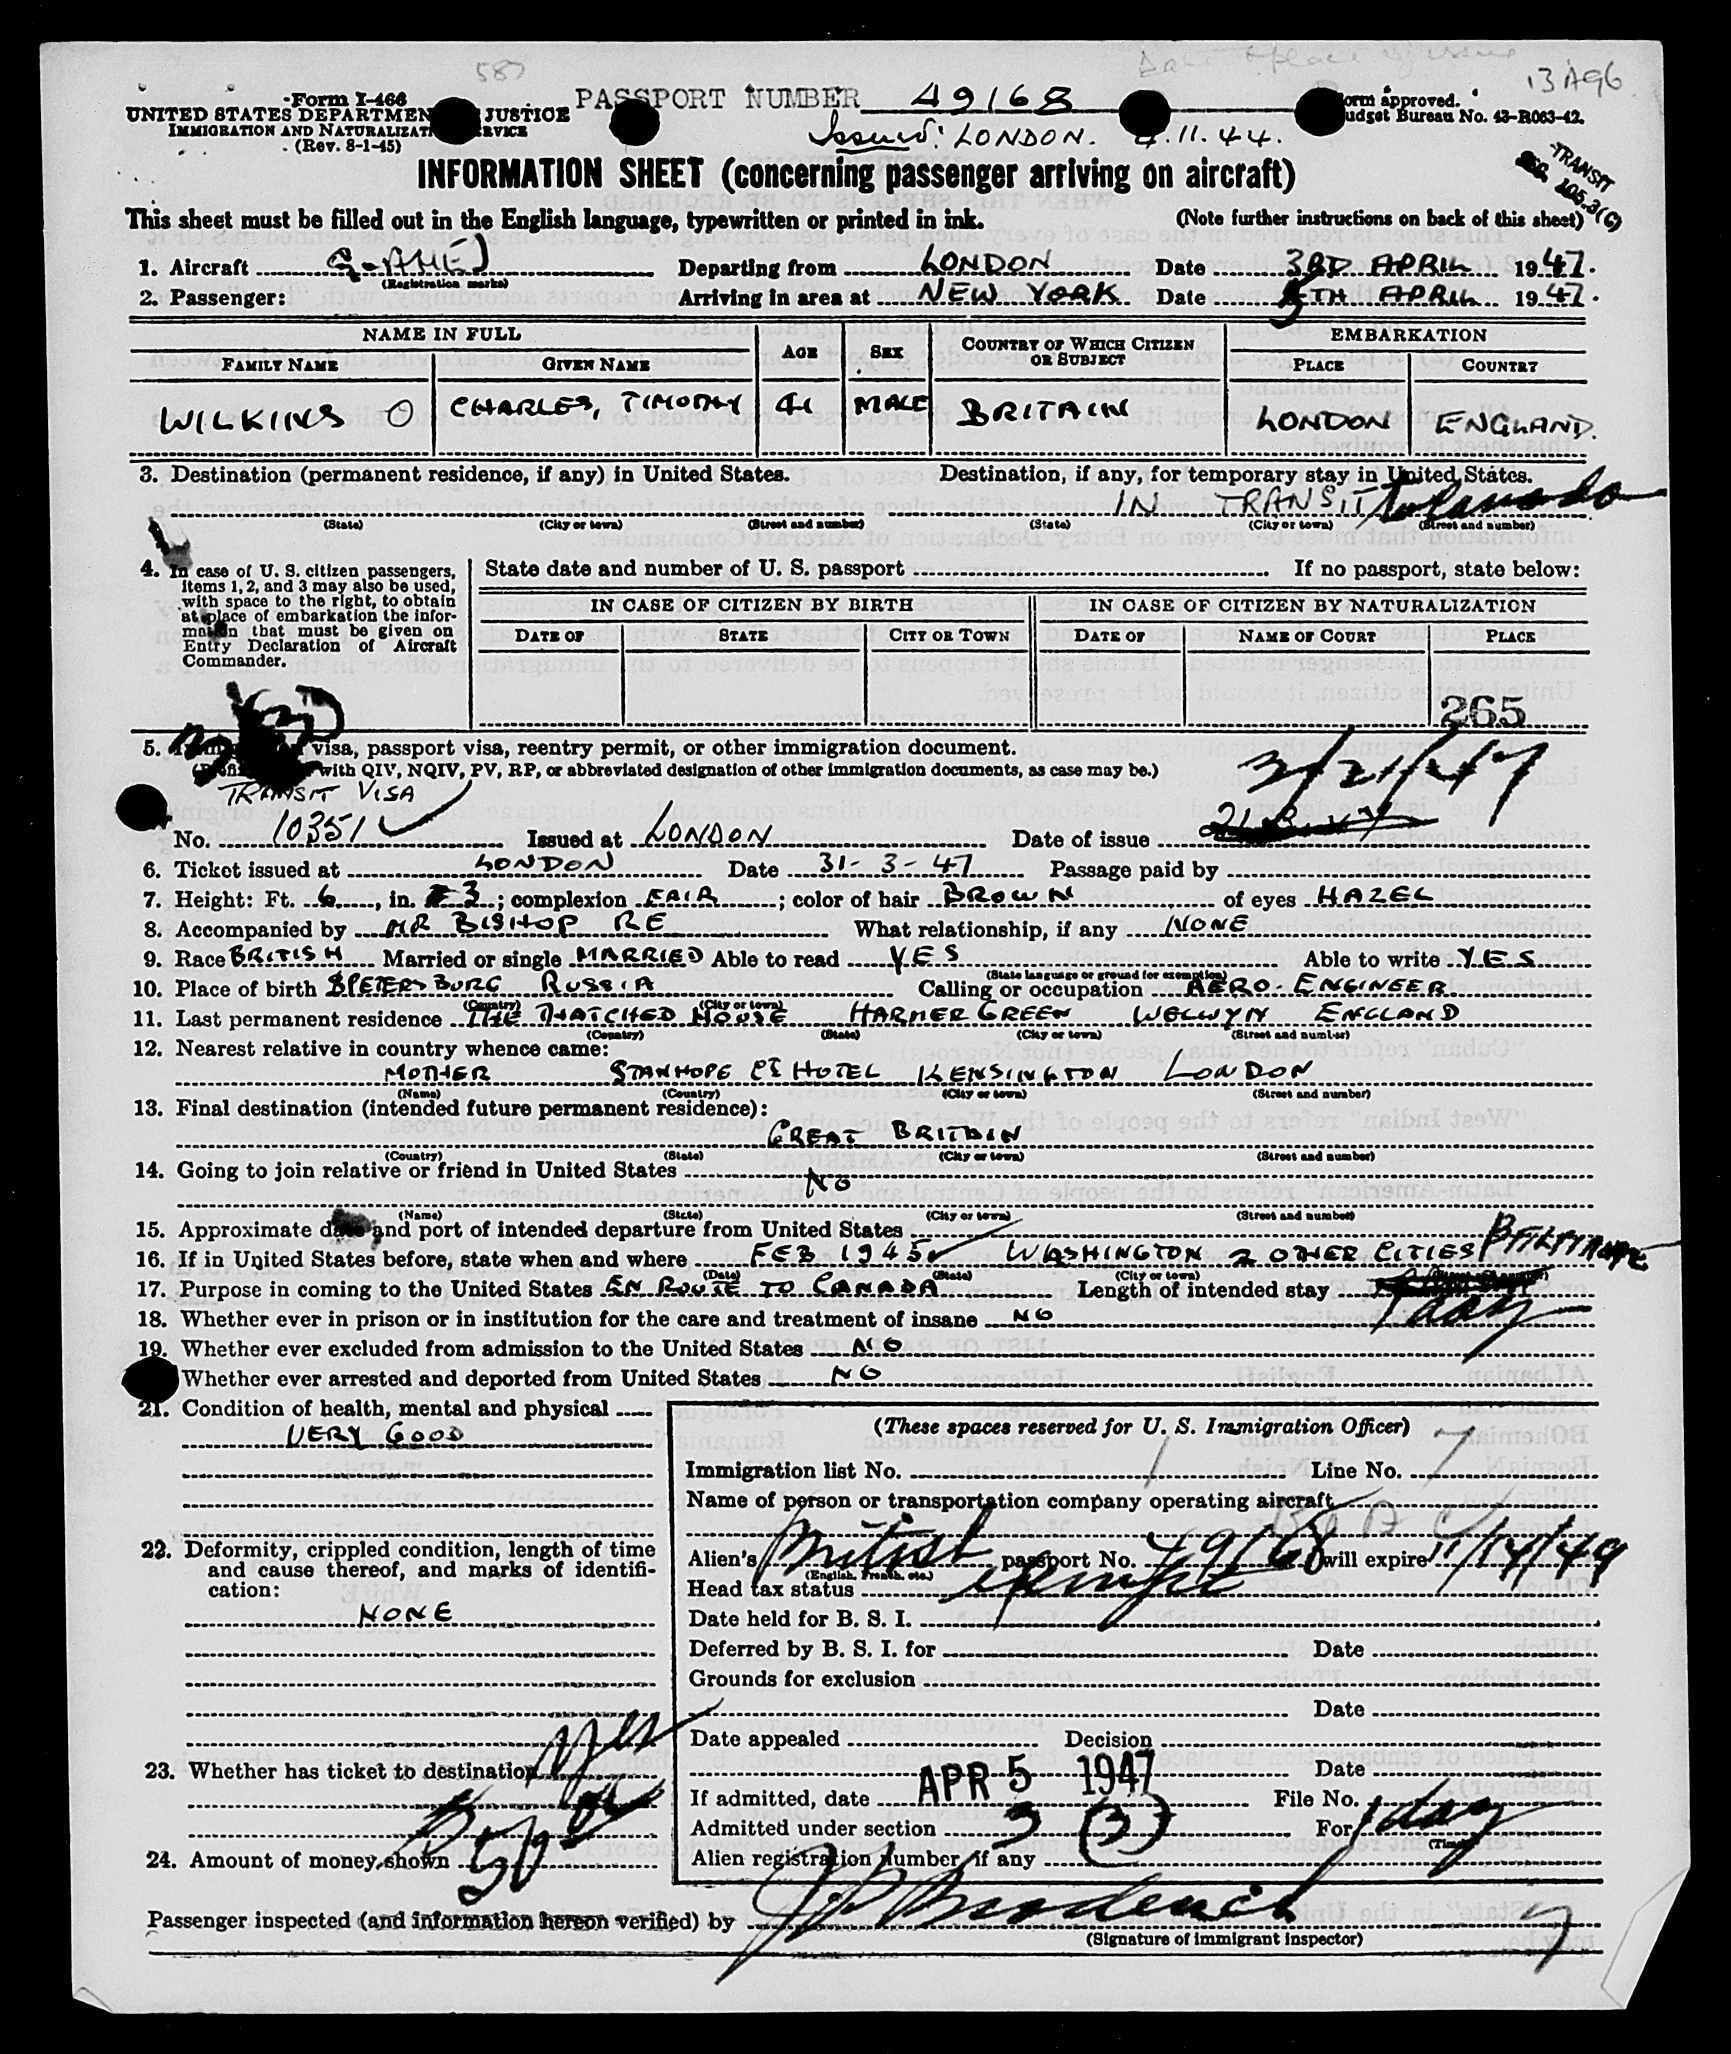 587
13A96
Form I-466
UNITED STATES DEPARTMEN JUSTICE
IMMIGRATION AND NATURALIZAT RVICE
(Rev. 8-1-45)
PASSPORT NUMBER 49168
Issued: LONDON. 11.44.
orm approved.
udget Bureau No. 43-R063-42.
TRANSIT
SEC. 105.3(C)
INFORMATION SHEET (concerning passenger arriving on aircraft)
This sheet must be filled out in the English language, typewritten or printed in ink. (Note further instructions on back of this sheet)
1. Aircraft G-AHEJ Departing from LONDON Date 3RD APRIL 1947.
(Registration marks)
2. Passenger: Arriving in area at NEW YORK Date 5TH APRIL 1947.
NAME IN FULL AGE SEX COUNTRY OF WHICH CITIZEN OR SUBJECT EMBARKATION
FAMILY NAME GIVEN NAME PLACE COUNTRY
WILKINS CHARLES, TIMOTHY 41 MALE BRITAIN LONDON ENGLAND.
3. Destination (permanent residence, if any) in United States. Destination, if any, for temporary stay in United States.
IN TRANSIT
(State) (City or town) (Street and number) (State) (City or town) (Street and number)
4. In case of U. S. citizen passengers, items 1, 2, and 3 may also be used, with space to the right, to obtain at place of embarkation the information that must be given on Entry Declaration of Aircraft Commander.
State date and number of U. S. passport If no passport, state below:
IN CASE OF CITIZEN BY BIRTH IN CASE OF CITIZEN BY NATURALIZATION
DATE OF STATE CITY OR TOWN DATE OF NAME OF COURT PLACE
265
5. visa, passport visa, reentry permit, or other immigration document.
with QIV, NQIV, PV, RP, or abbreviated designation of other immigration documents, as case may be.)
3/21/47
TRANSIT VISA
No. 10351 Issued at LONDON Date of issue
6. Ticket issued at LONDON Date 31-3-47 Passage paid by
7. Height: Ft. 6, in. 3; complexion FAIR; color of hair BROWN of eyes HAZEL
8. Accompanied by MR BISHOP RE What relationship, if any NONE
9. Race BRITISH Married or single MARRIED Able to read YES Able to write YES
(State language or ground for exemption)
10. Place of birth SPETERSBURG RUSSIA Calling or occupation AERO-ENGINEER
(Country) (City or town)
11. Last permanent residence THE THATCHED HOUSE HARMER GREEN WELWYN ENGLAND
(Country) (State) (City or town) (Street and number)
12. Nearest relative in country whence came:
MOTHER STANHOPE CT HOTEL KENSINGTON LONDON
(Name) (Country) (City or town) (Street and number)
13. Final destination (intended future permanent residence):
GREAT BRITAIN
(Country) (State) (City or town) (Street and number)
14. Going to join relative or friend in United States
NO
(Name) (State) (City or town) (Street and number)
15. Approximate date and port of intended departure from United States
16. If in United States before, state when and where FEB 1945 WASHINGTON 2 OTHER CITIES
(Date) (State) (City or town)
17. Purpose in coming to the United States EN ROUTE TO CANADA Length of intended stay
1 day
18. Whether ever in prison or in institution for the care and treatment of insane NO
19. Whether ever excluded from admission to the United States NO
Whether ever arrested and deported from United States NO
21. Condition of health, mental and physical
VERY GOOD
22. Deformity, crippled condition, length of time and cause thereof, and marks of identification:
NONE
23. Whether has ticket to destination Yes
24. Amount of money shown 50
(These spaces reserved for U. S. Immigration Officer)
Immigration list No. 1 Line No. 7
Name of person or transportation company operating aircraft
B O A C
Alien's British passport No. 49168 will expire 11/14/49
(English, French, etc.)
Head tax status exempt
Date held for B. S. I.
Deferred by B. S. I. for Date
Grounds for exclusion
Date
Date appealed Decision
Date
If admitted, date APR 5 1947 File No.
Admitted under section 3 (3) For 1 day
(Time)
Alien registration number, if any
Passenger inspected (and information hereon verified) by
(Signature of immigrant inspector)